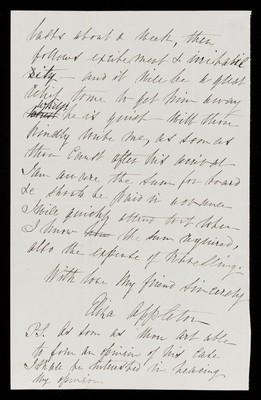 lasts about a week, then
follows excitement & irritabil
ity - and it will be a great
relief to me to get him away
whilst he is quiet - Will thou
kindly write me, as soon as
thou canst after his arrival
I am aware the sum for board
&c should be paid in advance
I will quickly attend to it when
I know the sum required,
also the expense of travelling.
With love my friend Sincerely
Eliza Appleton
P.S. As soon as thou art able
to form an opinion of his case
I shall be interested in hearing
thy opinion